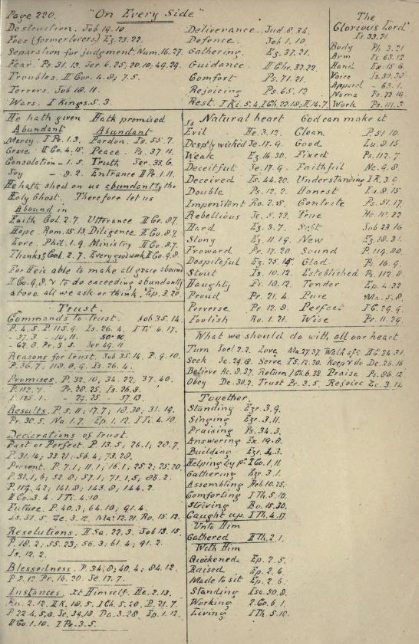 Page 220. "On Every Side"
Destruction. Job 19.10
Foes (former lovers) Ez. 23.22.
Separation for judgment. Num. 16.27
Fear. Ps. 31.13. Jer. 6.25, 20.10, 49.29.
Troubles. II Cor. 4.8, 7.5.
Terrors. Job 18.11.
Wars. I Kings 5.3.
Deliverance. Jud. 8.34.
Defence. Job 1.10
Gathering Ez. 37.21.
Guidance II Chr. 32.22.
Comfort Ps. 71.21.
Rejoicing Ps. 65.12
Rest. I Ki. 5.4, I Ch. 22.18, II 14.7
The
Glorious Lord
Is. 33.21
Body Ph. 3.21
Arm Is. 63.12
Hand Ex. 15.6
Voice Is. 30.30
Apparel 63.1.
Name Ps. 72.19
Work Ps. 111.3
He hath given
Abundant
Mercy I Pe. 1.3.
Grace II Co. 4.15
Consolation - 1.5
Joy - 8.2.
Hath promised
Abundant
Pardon. Is. 55.7.
Peace Ps. 37.11.
Truth Jer. 33.6
Entrance II Pe. 1.11.
He hath shed on us abundantly the
Holy Ghost. Therefore let us
Abound in
Faith Col. 2.7. Utterance II Co. 8.7.
Hope Rom. 15.13 Diligence II Co. 8.7
Love. Phil. 1.9 Ministry II Co. 8.7.
Thanksg Col. 2.7. Every good work II Co. 9.8
For He is able to make all grace abound
II Co. 9.8 & to do exceeding abundantly
above all we ask or think. Ep. 3.20
Natural heart God can make it
Evil He. 3.12. Clean. Ps. 51.10
Deeply wicked Je. 17.9. Good Lu. 8.15
Weak Ez. 16.30. Fixed Ps. 112.7
Deceitful Je. 17.9. Faithful Ne. 9.8.
Deceived Is. 44.20. Understanding I K. 3.9
Double Ps. 12.2. Honest Lu. 8.15
Impenitent Ro. 2.5. Contrite Ps. 51.17
Rebellious Je. 5.23. True He. 10.22
Hard Ez. 3.7. Soft Job 23.16
Stony Ez. 11.19. New Ez. 18.31.
Froward Pr. 17.20. Sound Ps. 119.80.
Despiteful Ez. 25.15. Glad Ps. 16.9
Stout Is. 10.12. Established Ps. 112.8
Haughty Pr. 18.12. Tender Ep. 4.32
Proud Pr. 21.4. Pure Ma. 5.8.
Perverse Pr. 12.8. Perfect I C. 29.9.
Foolish Ro. 1.21. Wise Pr. 11.29.
Trust.
Commands to Trust. Job 35.14
P. 4.5. P. 115.9. Is. 26.4. I Ti. 6.17.
Reasons for trust. Job 35.14. P. 9.10.
P. 36.7. 119.8,9. Is. 26.4.
Promises. P. 32.10, 34.22, 37.40.
Results. P. 5.11, 17.7, 18.30, 31.19.
Pr. 30.5. Na. 1.7. Ep. 1.12. I Ti. 4.10.
Declarations of trust.
Past or Perfect P. 13.5, 26.1, 28.7.
P. 31.14, 33.21, 56.4, 73.28.
Present. P. 7.1, 11.1, 16.1, 25.2, 25.20.
II Co. 3.4. I Ti. 4.10.
Future. P. 40.3, 64.10, 91.4.
Is. 51.5. Ze. 3.12. Ma. 12.21. Ro. 15.12.
Resolutions. II Sa. 22.3. Job 13.15.
P. 18.2, 55.23, 56.3, 61.4, 91.2.
Is. 12.2.
Blessedness. P. 34.8, 40.4, 84.12.
P. 2.12. Pr. 16.20. Je. 17.7.
Instances. Xt Himself. He. 2.13.
What we should do with all our heart
Together.
Standing Ezr. 3.9.
Singing Ezr. 3.11.
Praising Ps. 34.3.
Answering Ex. 19.8.
Building Ezr. 4.3.
Helping by Pr II Co. 1.11.
Gathering Ezr. 3.1.
Assembling Heb. 10.25.
Comforting I Th. 5.11.
Striving Ro. 15.30.
Caught up I Th. 4.17
Unto Him
Gathered II Th. 2.1.
With Him
Quickened Ep. 2.5.
Raised Ep. 2.6.
Made to sit Ep. 2.6.
Standing Isa. 50.8.
Working 2 Co. 6.1.
Living I Th. 5.10.